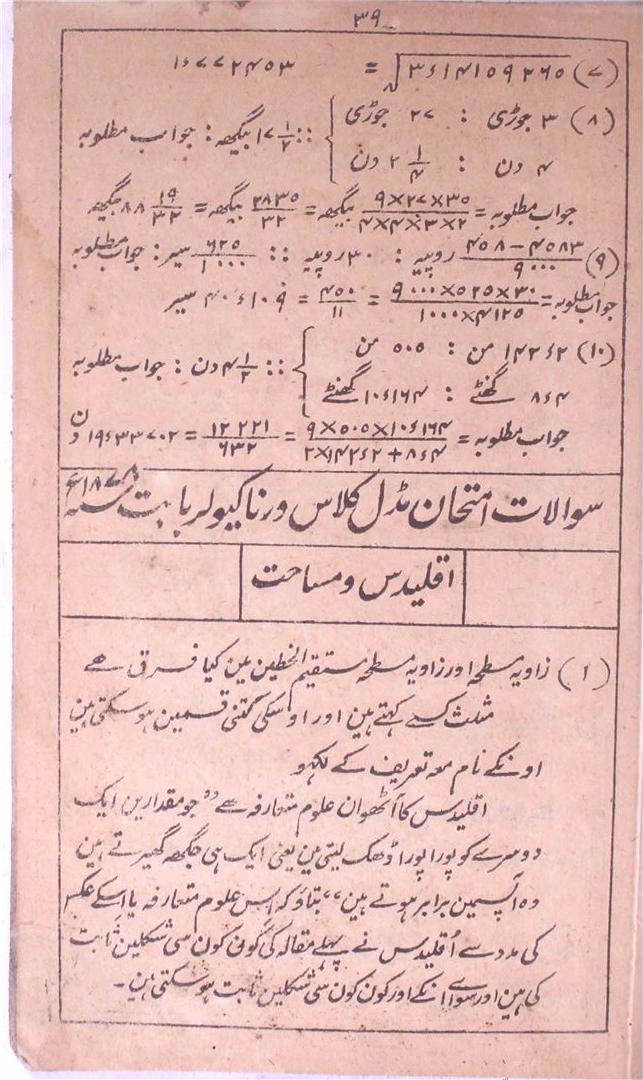 ۳۹
(۷) √۳ء۱۴۱۵۹۲۶۵ = ۱ء۷۷۲۴۵۳
(۸) ۳ جوڑی : ۲۷ جوڑی
۴ دن : ۲ ۱/۴ دن } :: ۱۷ ۱/۲ بیگھہ : جواب مطلوبہ
جواب مطلوبہ = ۹×۲۷×۳۵/۴×۴×۳×۲ بیگھہ = ۲۸۳۵/۳۲ بیگھہ = ۸۸ ۱۹/۳۲ بیگھہ
(۹) ۴۵۸۳-۴۵۸/۹۰۰۰ روپیہ : ۳۰ روپیہ :: ۶۲۵/۱۰۰۰ سیر : جواب مطلوبہ
جواب مطلوبہ = ۹۰۰۰×۵۲۵×۳۰/۱۰۰۰×۴۱۲۵ = ۴۵۰/۱۱ = ۴۰ء۹۰ سیر
(۱۰) ۱۴۲ء۲ من : ۵۰۵ من
۸ء۴ گھنٹے : ۱۰ء۱۶۴ گھنٹے } :: ۴ ۱/۲ دن : جواب مطلوبہ
جواب مطلوبہ = ۹×۵۰۵×۱۰ء۱۶۴/۲×۱۴۲ء۲+۸ء۴ = ۱۲۲۲۱/۶۳۲ = ۱۹ء۳۳۷۰۲ دن
سوالات امتحان مڈل کلاس ورناکیولر بابت سنہ ۱۸۷۸ء
اقلیدس و مساحت
(۱) زاویہ سطحہ اور زاویہ سطحہ مستقیم الخطین مین کیا فرق ہے
مثلث کسے کہتے ہین اور اوسکی کتنی قسمین ہوسکتی ہین
اونکے نام معہ تعریف کے لکھو
اقلیدس کا آٹھوان علوم متعارفہ ہے ”جو مقدارین ایک
دوسرے کو پورا پورا ڈھک لیتی ہین یعنی ایک ہی جگہہ گھیرتے ہین
وہ آپسمین برابر ہوتے ہین“ بتاؤ کہ اس علوم متعارفہ یا اسکے عکس
کی مدد سے اُقلیدس نے پہلے مقالہ کی کون کون سی شکلین ثابت
کی ہین اور سواے انکے اور کون کون سی شکلین ثابت ہوسکتی ہین۔